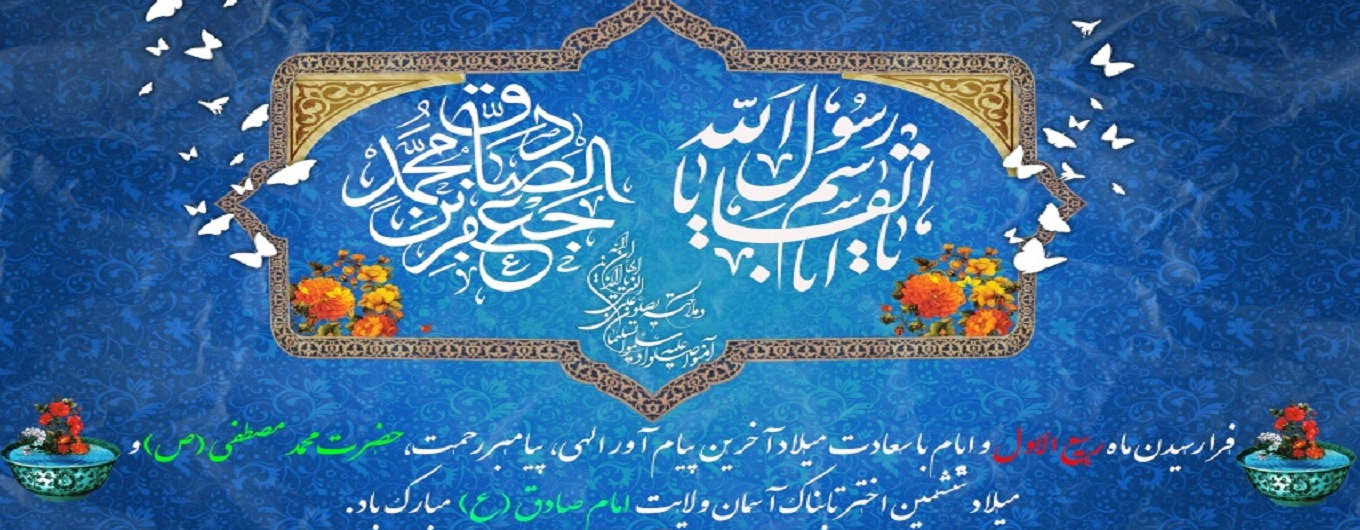 یا ابا القاسم یا رسول الله
جعفر بن محمد الصادق
فرا رسیدن ماه ربیع الاول و ایام با سعادت میلاد آخرین پیام آور الهی، پیامبر رحمت، حضرت محمد مصطفی (ص) و
میلاد ششمین اختر تابناک آسمان ولایت امام صادق (ع) مبارک باد.